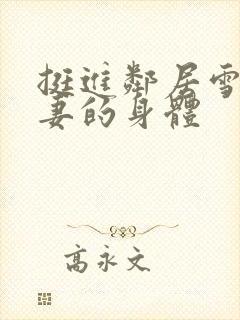 挺進鄰居雪
妻的身體
高永文